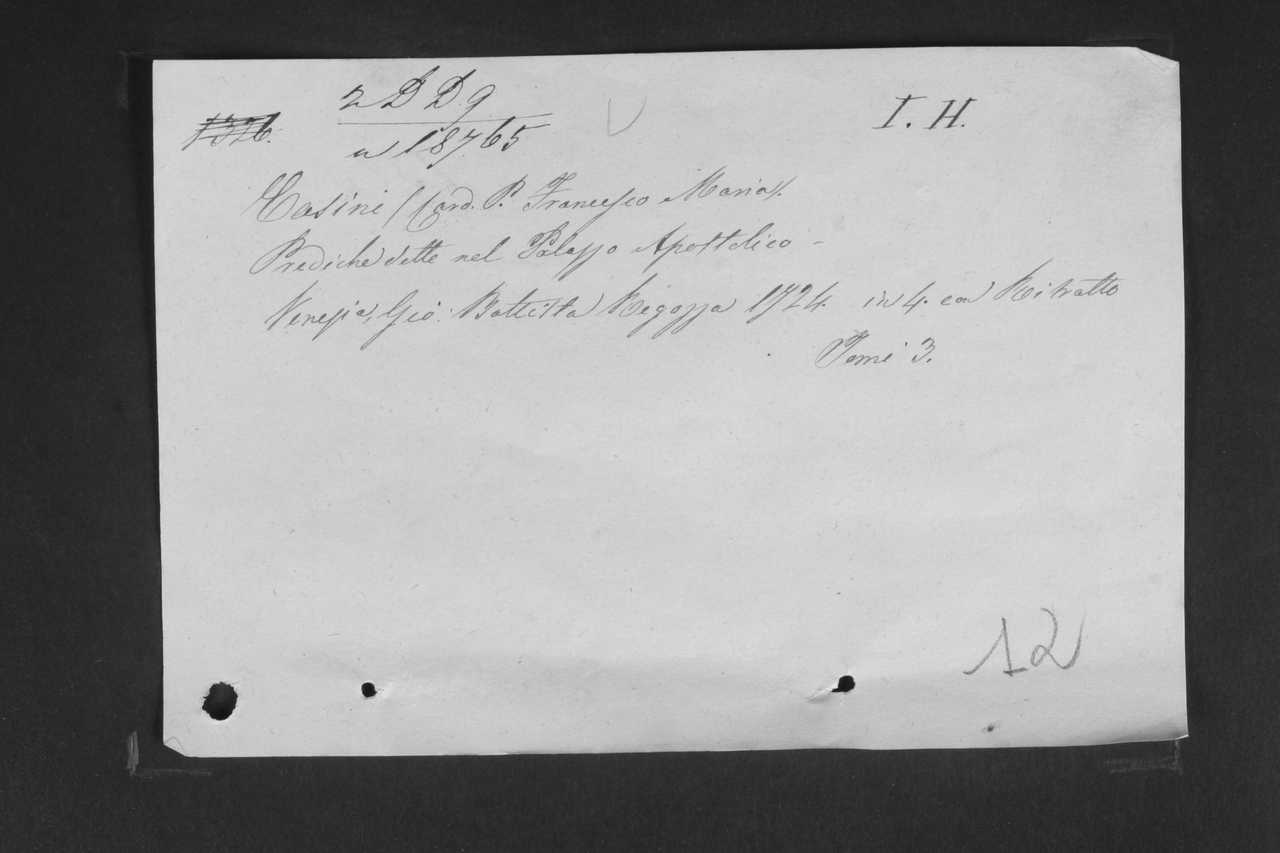 1326.
2 D D 9
n 18765
I. H.
Casini /Card. P. Francesco Maria/.
Prediche dette nel Palazzo Apostolico -
Venezia, Gio: Battista Regozza 1724. in 4. con Ritratto
Tomi 3.
12